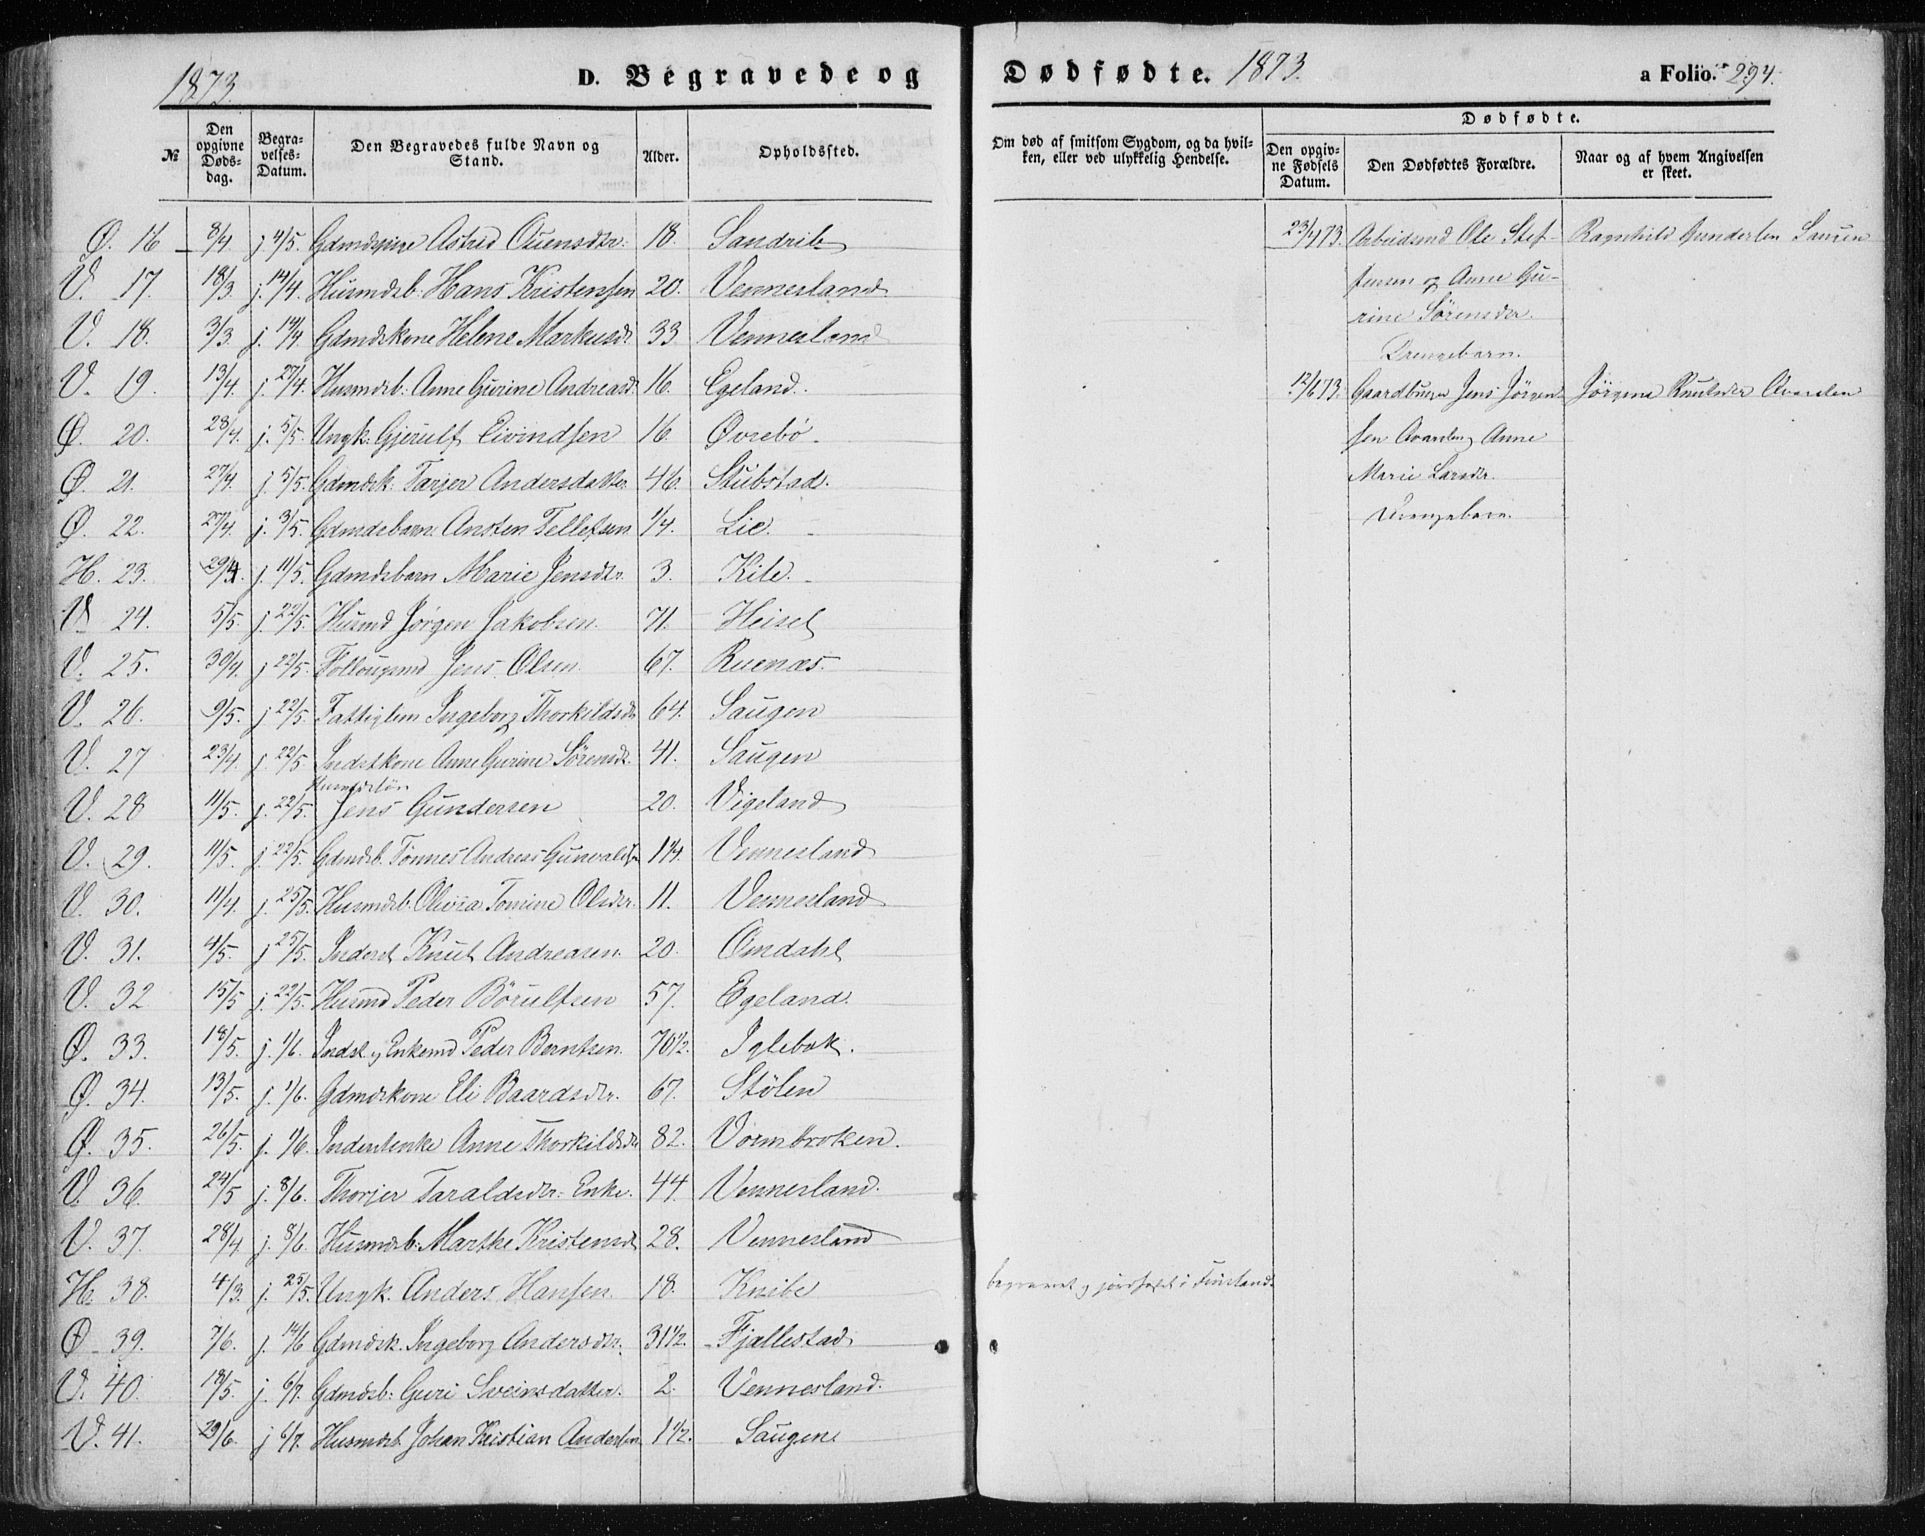 1873.
D. Begravede og
Dødfødte. 1873.
a Folio. 294.
№
Den opgivne Døds-dag.
Begra-velses-Datum.
Den Begravedes fulde Navn og Stand.
Alder.
Opholdssted.
Om død af smitsom Sygdom, og da hvil-ken, eller ved ulykkelig Hendelse.
Dødfødte.
Den opgiv-ne Fødsels Datum.
Den Dødfødtes Forældre.
Naar og af hvem Angivelsen er skeet.
Ø. 16 8/4 j. 4/5. Astrid Ouensdtr. 18. Sandrib
V. 17. 18/3 j. 14/4. Husmdsb. Hans Kristensen 20. Vennesland
V. 18. 3/3. j. 14/4 Gdmdskone Helene Markusdt 33 Vennesland
V. 19. 13/4 j. 27/4. Husmdsb. Anne Gurine Andreasd. 16. Egeland.
Ø. 20. 28/4. j. 5/5. Ungk. Gjerulf Eivindsen 16. Øvrebö
Ø. 21. 27/4. j. 5/5. Gdmdsk. Tarjer Andersdatter 46. Stubstad.
Ø. 22. 27/4 j. 3/5. Gdmdsbarn Ansten Tellefsen 1/4. Lie.
H. 23. 29/4. j. 11/5. Gdmdsbarn Marie Jensdtr. 3. Kile.
V. 24. 5/5. j. 22/5. Husmd Jørgen Jakobsen. 71. Heisel
V. 25. 30/4. j 22/5. Jens Olsen. 67. Ruenæs.
V. 26. 9/5. j 22/5. Fattiglem Ingeborg Thorkildsdt 64. Saugen
V. 27 23/4. j. 22/5. Indstkone Anne Gurine Sörensdt. 41. Saugen
V. 28 11/5. j. 22/5. Jens Gundersen 20. Vigeland
V. 29. 11/5. j. 22/5. Gdmdsb. Tönnes Andreas Gunvaldsen 1 1/4. Vennesland
V. 30. 11/4. j. 25/5. Husmdsb. Olivia Tomine Olsdtr. 11. Vennesland
V. 31. 4/5. j 25/5. Inderst Knut Andreasen. 20. Omdahl
V. 32 15/5 j. 22/5. Husmd Peder Börulfsen 57. Egeland.
Ø. 33. 18/5. j. 1/6. Indst. og Enkemd Peder Berntsen. 70 1/2. Iglebæk.
Ø. 34. 13/5. j. 1/6. Gdmdskone Eli Baardsdtr. 67. Stölen
Ø. 35. 26/5. j. 1/6. Inderstenke Anne Thorkildsdt 82. Vormbroken.
V. 36. 24/5 j. 8/6. Thorjer Taraldsdtr. Enke. 44. Vennesland.
V. 37. 28/4 j. 8/6. Husmdsb. Marthe Kristensd 28. Vennesland
H. 38. 4/3. j. 25/5. Ungk. Anders Hansen. 18. Knibe begravet og jordfæstet i Finsland.
Ø. 39. 7/6. j. 14/6 Gdmdsk. Ingeborg Andersdtr. 31 1/2. Fjallestad
V. 40. 18/5. j. 6/7. Gdmdsb. Guri Sveinsdatter. 2. Vennesland.
V. 41. 29/6. j 6/7. Husmdsb. Johan Kristian Andersen 1 1/2. Saugen
23/4 73. Arbeidsmd Ole Stef-
fensen og Anne Gu-
rine Sørensdtr.
Drengebarn.
Ragnhild Gundersen Saugen
12/6 73. Gaardbruger Jens Jörgen-
sen Anne
Marie Larsdtr.
Drengebarn.
Jörgine